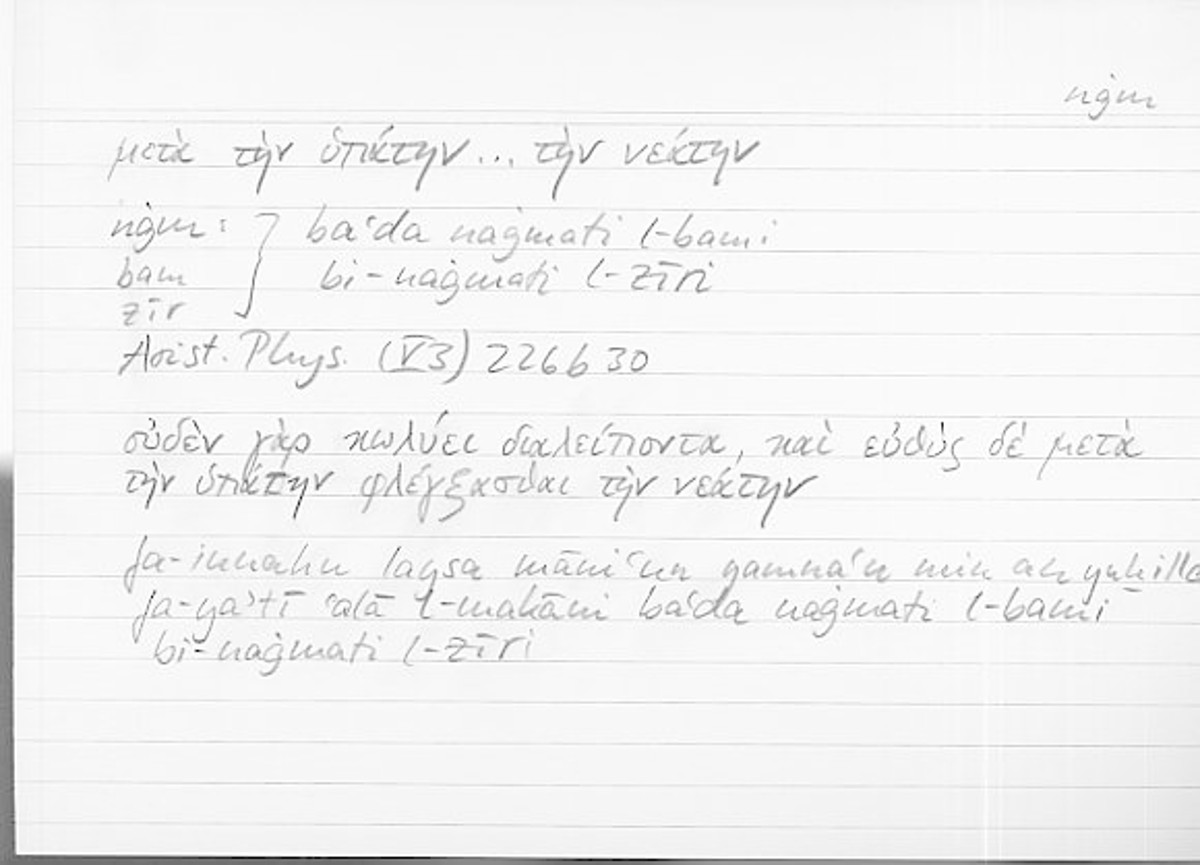 nġm
μετὰ τὴν ὑπάτην... τὴν νεάτην
nġm: } baʿda naġmati l-bami
bam bi-naġmati l-zīri
zīr
Arist. Phys. (V3) 226b30
οὐδὲν γὰρ κωλύει διαλείποντα, καὶ εὐθὺς δὲ μετὰ
τὴν ὑπάτην φλέγξασθαι τὴν νεάτην
fa-innahu laysa māniʿun yamnaʿu min an yuḫilla
fa-yaʾtī ʿalā l-makāni baʿda naġmati l-bami
bi-naġmati l-zīri